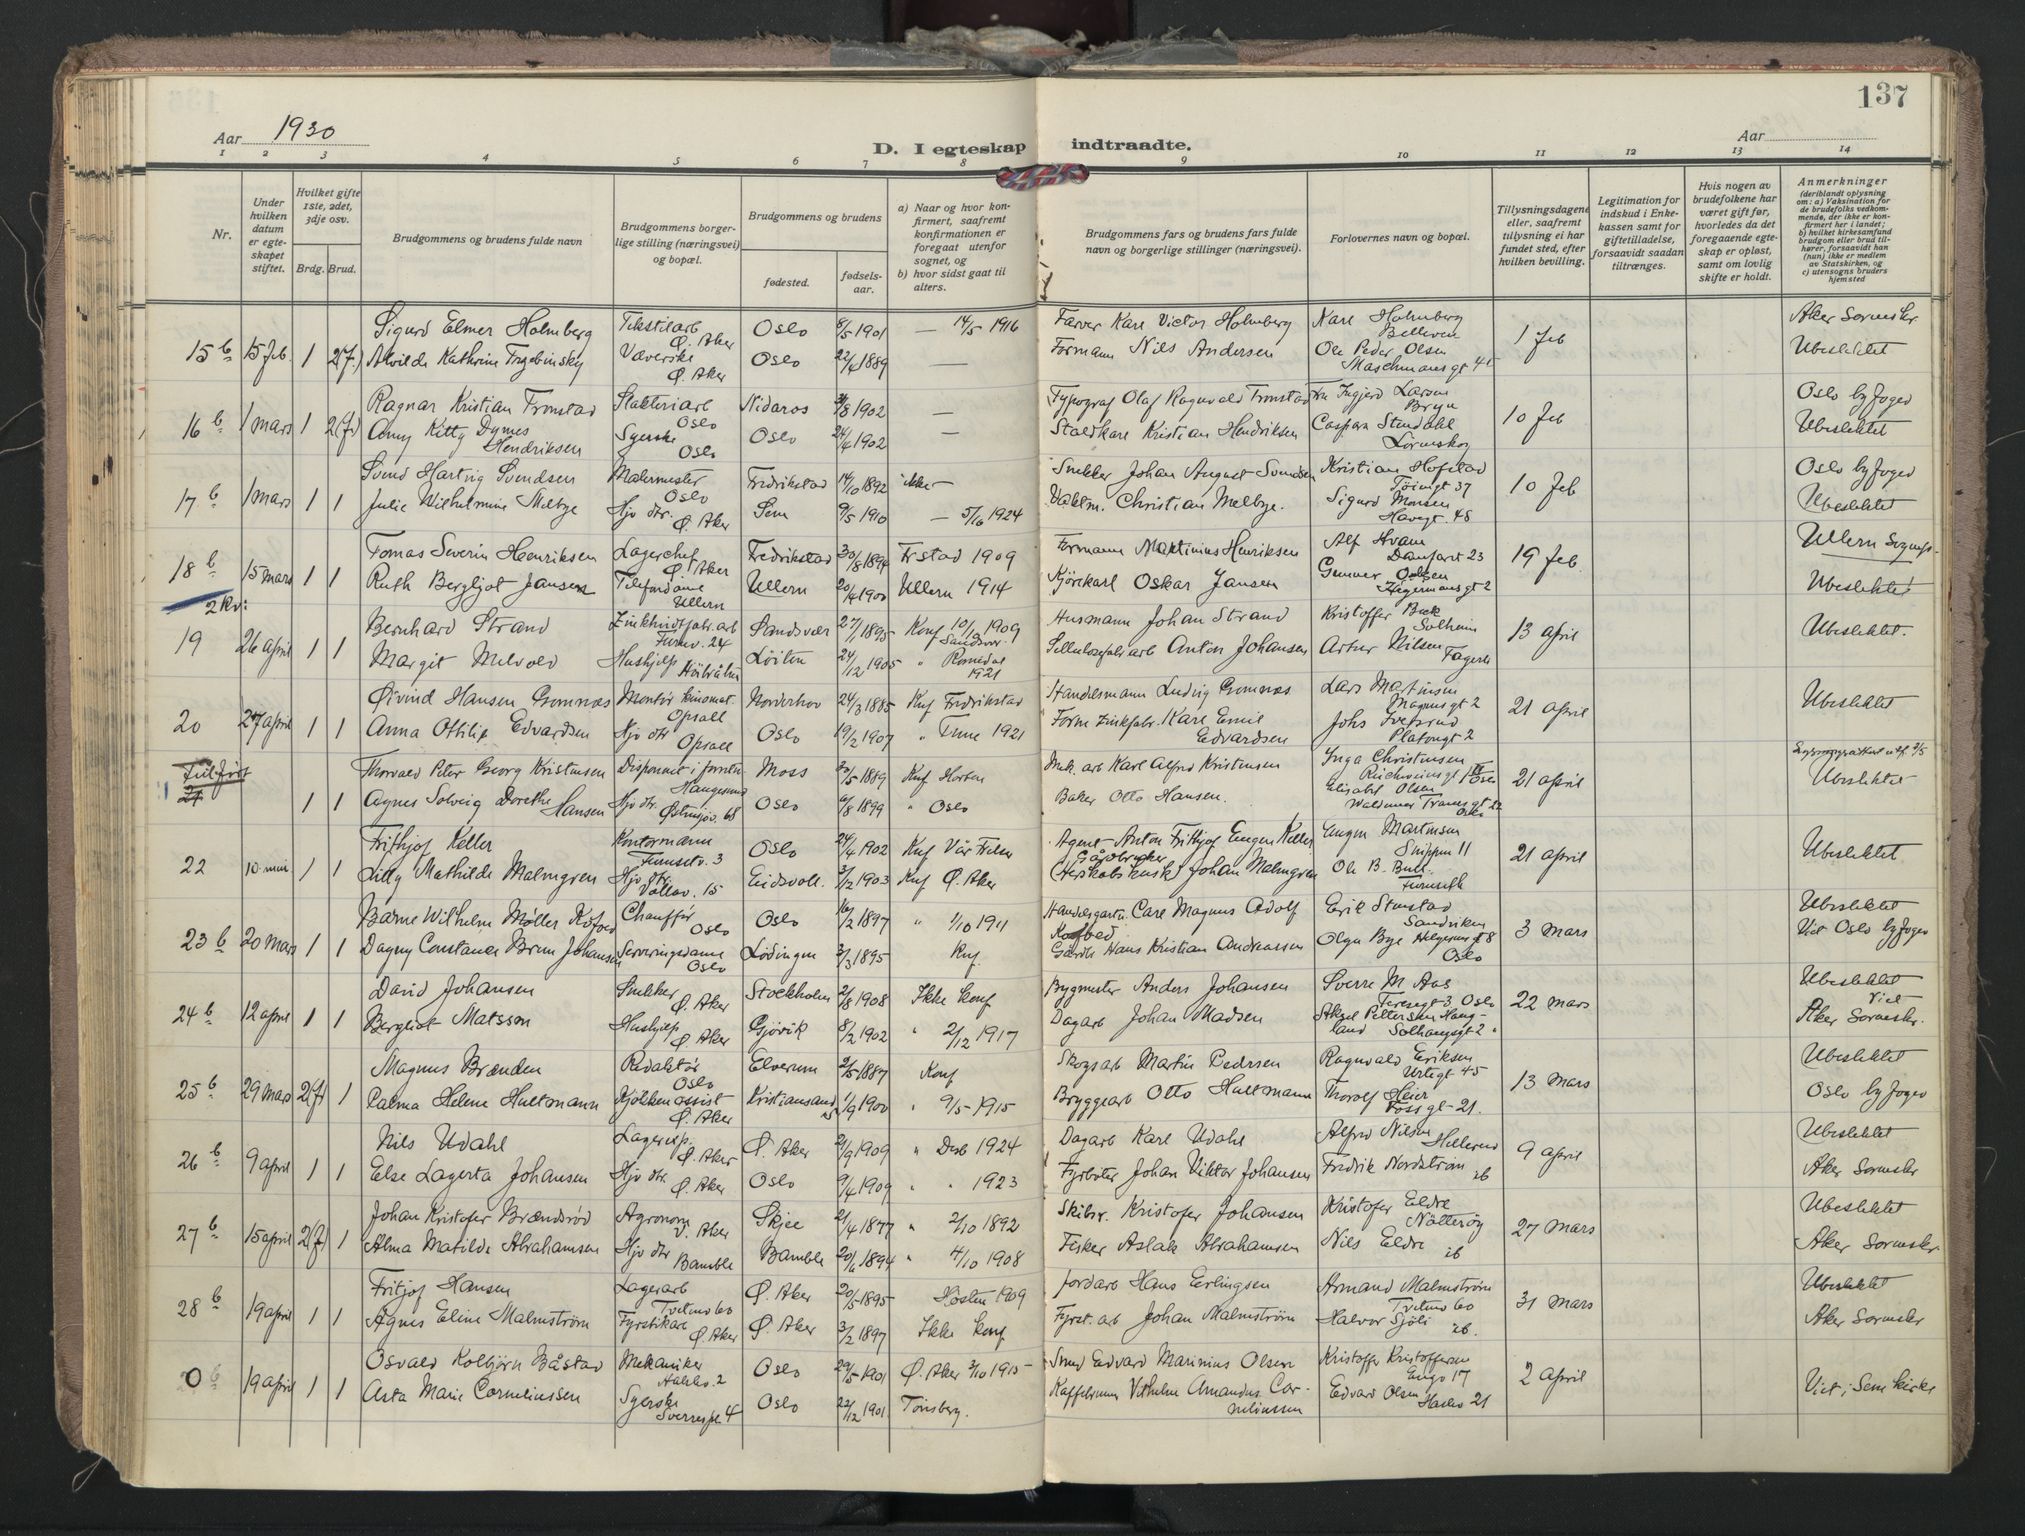 137
Aar 1930
D. I egteskap indtraadte.
Aar
1 2 3 4 5 6 7 8 9 10 11 12 13 14
Nr.
Under hvilken datum er egteskapet stiftet.
Hvilket gifte 1ste, 2det, 3dje osv.
Brdg. Brud.
Brudgommens og brudens fulde navn
Brudgommens borgerlige stilling (næringsvei) og bopæl.
Brudgommens og brudens
fødested.
fødselsaar.
a) Naar og hvor konfirmert, saafremt konfirmationen er foregaat utenfor sognet, og
b) hvor sidst gaat til alters.
Brudgommens fars og brudens fars fulde navn og borgerlige stillinger (næringsvei).
Forlovernes navn og bopæl.
Tillysningsdagene eller, saafremt tillysning ei har fundet sted, efter hvilken bevilling.
Legitimation for indskud i Enkekassen samt for giftetilladelse, forsaavidt saadan tiltrænges.
Hvis nogen av brudefolkene har været gift før, hvorledes da det foregaaende egteskap er opløst, samt om lovlig skifte er holdt.
Anmerkninger
(deriblandt oplysning om: a) Vaksination for de brudefolks vedkommende, der ikke er konfirmert her i landet; b) hvilket kirkesamfund brudgom eller brud tilhører, forsaavidt han (hun) ikke er medlem av Statskirken, og c) utensogns bruders hjemsted
Sigurd Elmer Holmberg Tekstilarb Ø. Aker Oslo 8/5 1901 — 14/5 1916 Farver Karl Victor Holmberg Karl Holmberg Aker Sornskr
15 b 15 Feb. 1 2(f.) Alvilde Kathrine Væverske Ø. Aker Oslo 22/4 1889 — Formann Nils Andersen Ole Peder Olsen Maschmansgt 1 Feb Ubeslektet
Ragnar Kristian Tronstad Slakteriarb Oslo Nidaros 1902 — Typograf Olaf Ragnvald Tronstad Ingjerd Larsen Bryn Oslo byfoged
16 b 1 mars 1 2(f) Amy Kitty Dymes Hendriksen Syerske Oslo Oslo 24/4 1902 — Staldkarl Kristian Hendriksen Caspara Stendahl Lørenskog 10 Feb Ubeslektet
Svend Hartvig Svendsen Malermester Oslo Fredrikstad 14/10 1892 ikke — Snekker Johan August Svendsen Kristian Hofstad Tøiengt 37 Oslo byfoged
17 b 1 mars 1 1 Julie Wilhelmine Melbye Hjv dtr. Ø. Aker Sem 9/5 1910 — 5/10 1924 Christian Melbye. Sigurd Monsen Havegt. 48 10 Feb Ubeslektet
Tomas Severin Henriksen Lagerchef Ø. Aker Fredrikstad 30/8 1894 Frstad 1909 Formann Martinius Henriksen Alf Hvam 23 Ullern
18 b 15 mars 1 1 Ruth Bergljot Jansen Telefondame Ullern Ullern 20/4 1900 Ullern 1914 Kjørekarl Oskar Jansen Gunnar Olsen Hegermansgt 2 19 Feb. Ubeslektet
2 Kv:
Bernhard Strand 24 Sandsvær 27/1 1895 Konf 10/10 1909 Sandsvær Husmann Johan Strand Kristoffer Solheim
19 26 april 1 1 Margit Melvold Hushjelp Løiten 24/12 1905 " Romedal 1921 Anton Johansen Artur Nilsen 13 april Ubeslektet.
Øivind Hansen Gomnæs Montør kinomat. Opsall Norderhov 24/3 1885 Knf Fredrikstad Handelsmann Ludvig Gomnæs Lars Martinsen Magnusgt 2
20 27 april 1 1 Anna Ottilie Edvardsen Hjv dtr Opsall Oslo 19/2 1907 " Tune 1921 Karl Emil Edvardsen Johs Platousgt 2 21 april Ubeslektet
Tilført 21 Thorvald Peter Georg Kristensen Disponent Haugesund Moss 20/5 1889 Knf Horten Mek. arb Karl Alfred Kristensen Inga Christensen Oslo
1 1 Agnes Solveig Dorethe Hansen Hjv dtr. Østensjøv. 68 Oslo 6/8 1899 " Oslo Baker Otto Hansen. Elisabet Olsen Waldemar Tranesgt 22 Oslo 21 april Ubeslektet
Frithjof Keller Kontormann Furusetv. 3 Oslo 24/4 1902 Knf Vår Frelser Agent Anton Frithjof Eugen Keller Eugen Martinsen 11
22 10 mai 1 1 Lilly Mathilde Malmgren Hjv dtr. 15 Eidsvoll. 3/12 1903 Knf Ø. Aker Gårdbruker (Herskabskusk) Johan Malmgren Ole B. Bull. Furuseth 21 april Ubeslektet
Barne Wilhelm Møller Kofoed Chauffør Oslo Oslo 16/2 1897 " 1/10 1911 Handelsgartn. Carl Magnus Adolf Kofoed Erik Stenstad Sandviken Ubeslektet
23 b 20 mars 1 1 Dagny Constance Brun Johansen Serveringsdame Oslo Lødingen 3/3 1895 Knf. Hans Kristian Andreassen Olga Bye Helgesensgt 8 Oslo 3 mars Viet Oslo byfoged
David Johansen Snekker Ø. Aker Stockholm 2/8 1908 Ikke konf Bygmester Anders Johansen Sverre M Aas Teresesgt 3 Oslo Ubeslektet
24 b 12 april 1 1 Bergliot Matsson Hushjelp Ø. Aker Gjøvik 8/2 1902 " 2/12 1917 Dagarb Johan Madsen Aksel Pettersen Haugland Solhaugsgt 2 22 mars Viet Aker Sornskr.
Magnus Brænden Redaktør Oslo Elverum 2/5 1887 Konf Skogsarb Martin Pedersen Ragnvald Eriksen Urtegt 45 Ubeslektet
25 b 29 mars 2(f) 1 Palma Helene Hultmann Kjøkkenassist Ø. Aker Kristiansand 1/9 1900 " 9/5 1915 Bryggearb Otto Hultmann Thorolf Heier Fossgt 21. 13 mars Oslo byfoged
Nils Udahl Lagereksp. Ø. Aker Ø. Aker 2/9 1909 " Des 1924 Dagarb Karl Udahl Alfred Nilsen Hellerud Ubeslektet
26 b 9 april 1 1 Else Lagerta Johansen Hjv dtr. Ø. Aker Oslo 9/4 1909 " " 1923 Fyrbøter Johan Viktor Johansen Fredrik Nordstrøm ib 9 april Aker Sornskr
Johan Kristofer Brændsrød Agronom V. Aker Skjee 2/4 1877 " 2/10 1892 Skibsr. Kristofer Johansen Kristofer Eldre Nøtterøy Ubeslektet
27 b 15 april 2(f) 1 Alma Matilde Abrahamsen Hjv dtr Bamble Bamble 20/6 1894 " 4/10 1908 Fisker Aslak Abrahamsen Nils Eldre ib 27 mars Aker Sornskr.
Fritjof Hansen Lagerarb Tvetenv 60 Ø. Aker 20/5 1895 Høsten 1909 Jordarb Hans Erlingsen Armand Malmstrøm Tvetenv 60 Ubeslektet
28 b 19 april 1 1 Agnes Eline Malmstrøm Fyrstikarb Ø. Aker Ø. Aker 3/2 1897 Ikke konf Fyrst. arb Johan Malmstrøm Halvor Sjøli ib. 31 mars Aker Sornskr
Osvald Kolbjørn Båstad Mekaniker 2 Oslo 29/5 1901 Ø. Aker 3/10 1915 Smed Edvard Marinius Olsen Kristoffer Kristoffersen Enga 17
0 b 19 april 1 1 Asta Marie Corneliussen Syerske Sverrespl. 4 Oslo 22/12 1901 Tønsberg. Vilhelm Amandus Corneliussen Edvard Olsen Haslev 21 2 april Viet i Sem kirke